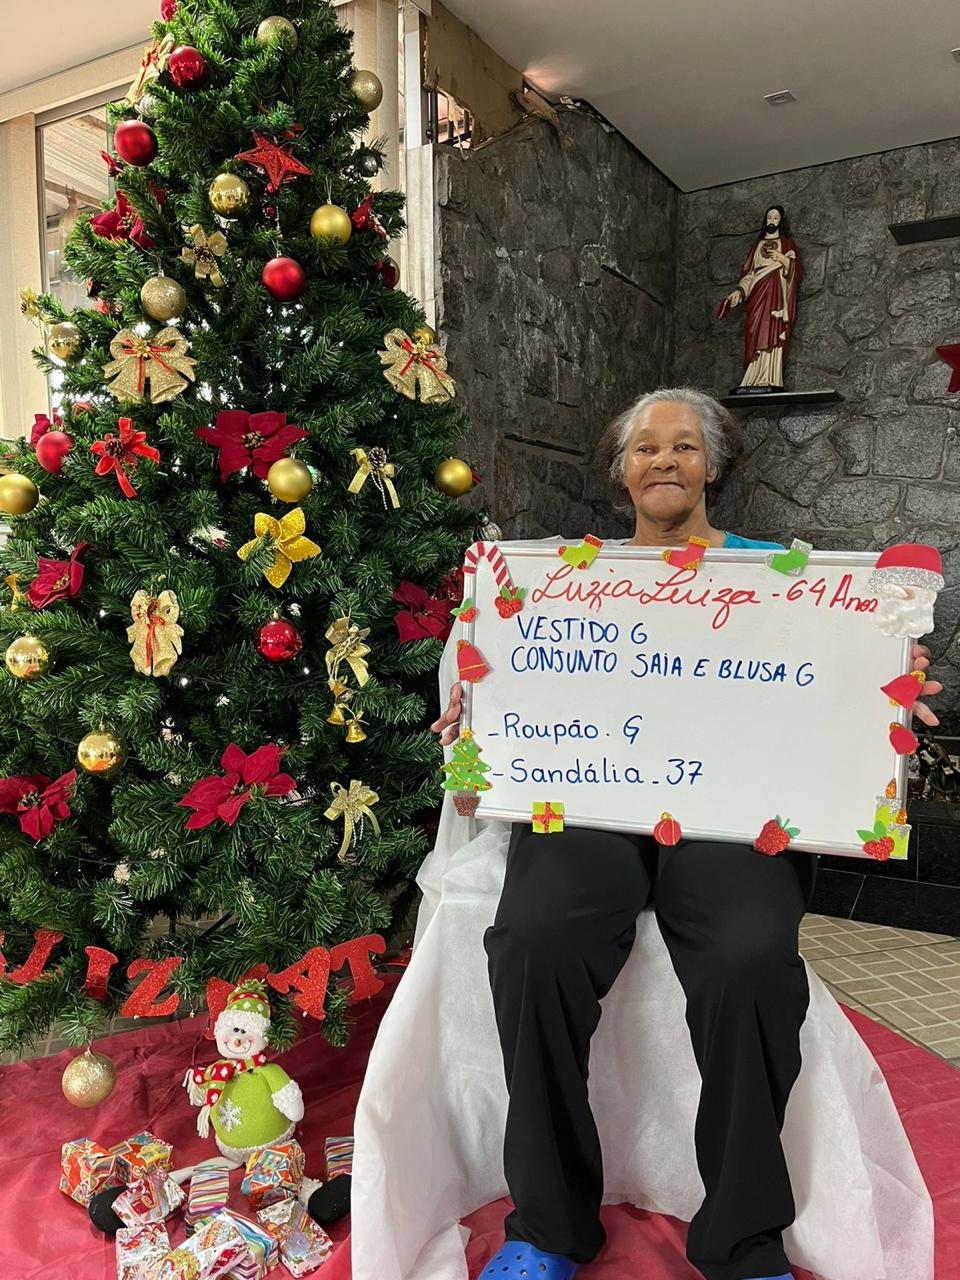 Luzia Luiza - 64 Anos
VESTIDO G
CONJUNTO SAIA E BLUSA G
- Roupão. G
- Sandália - 37